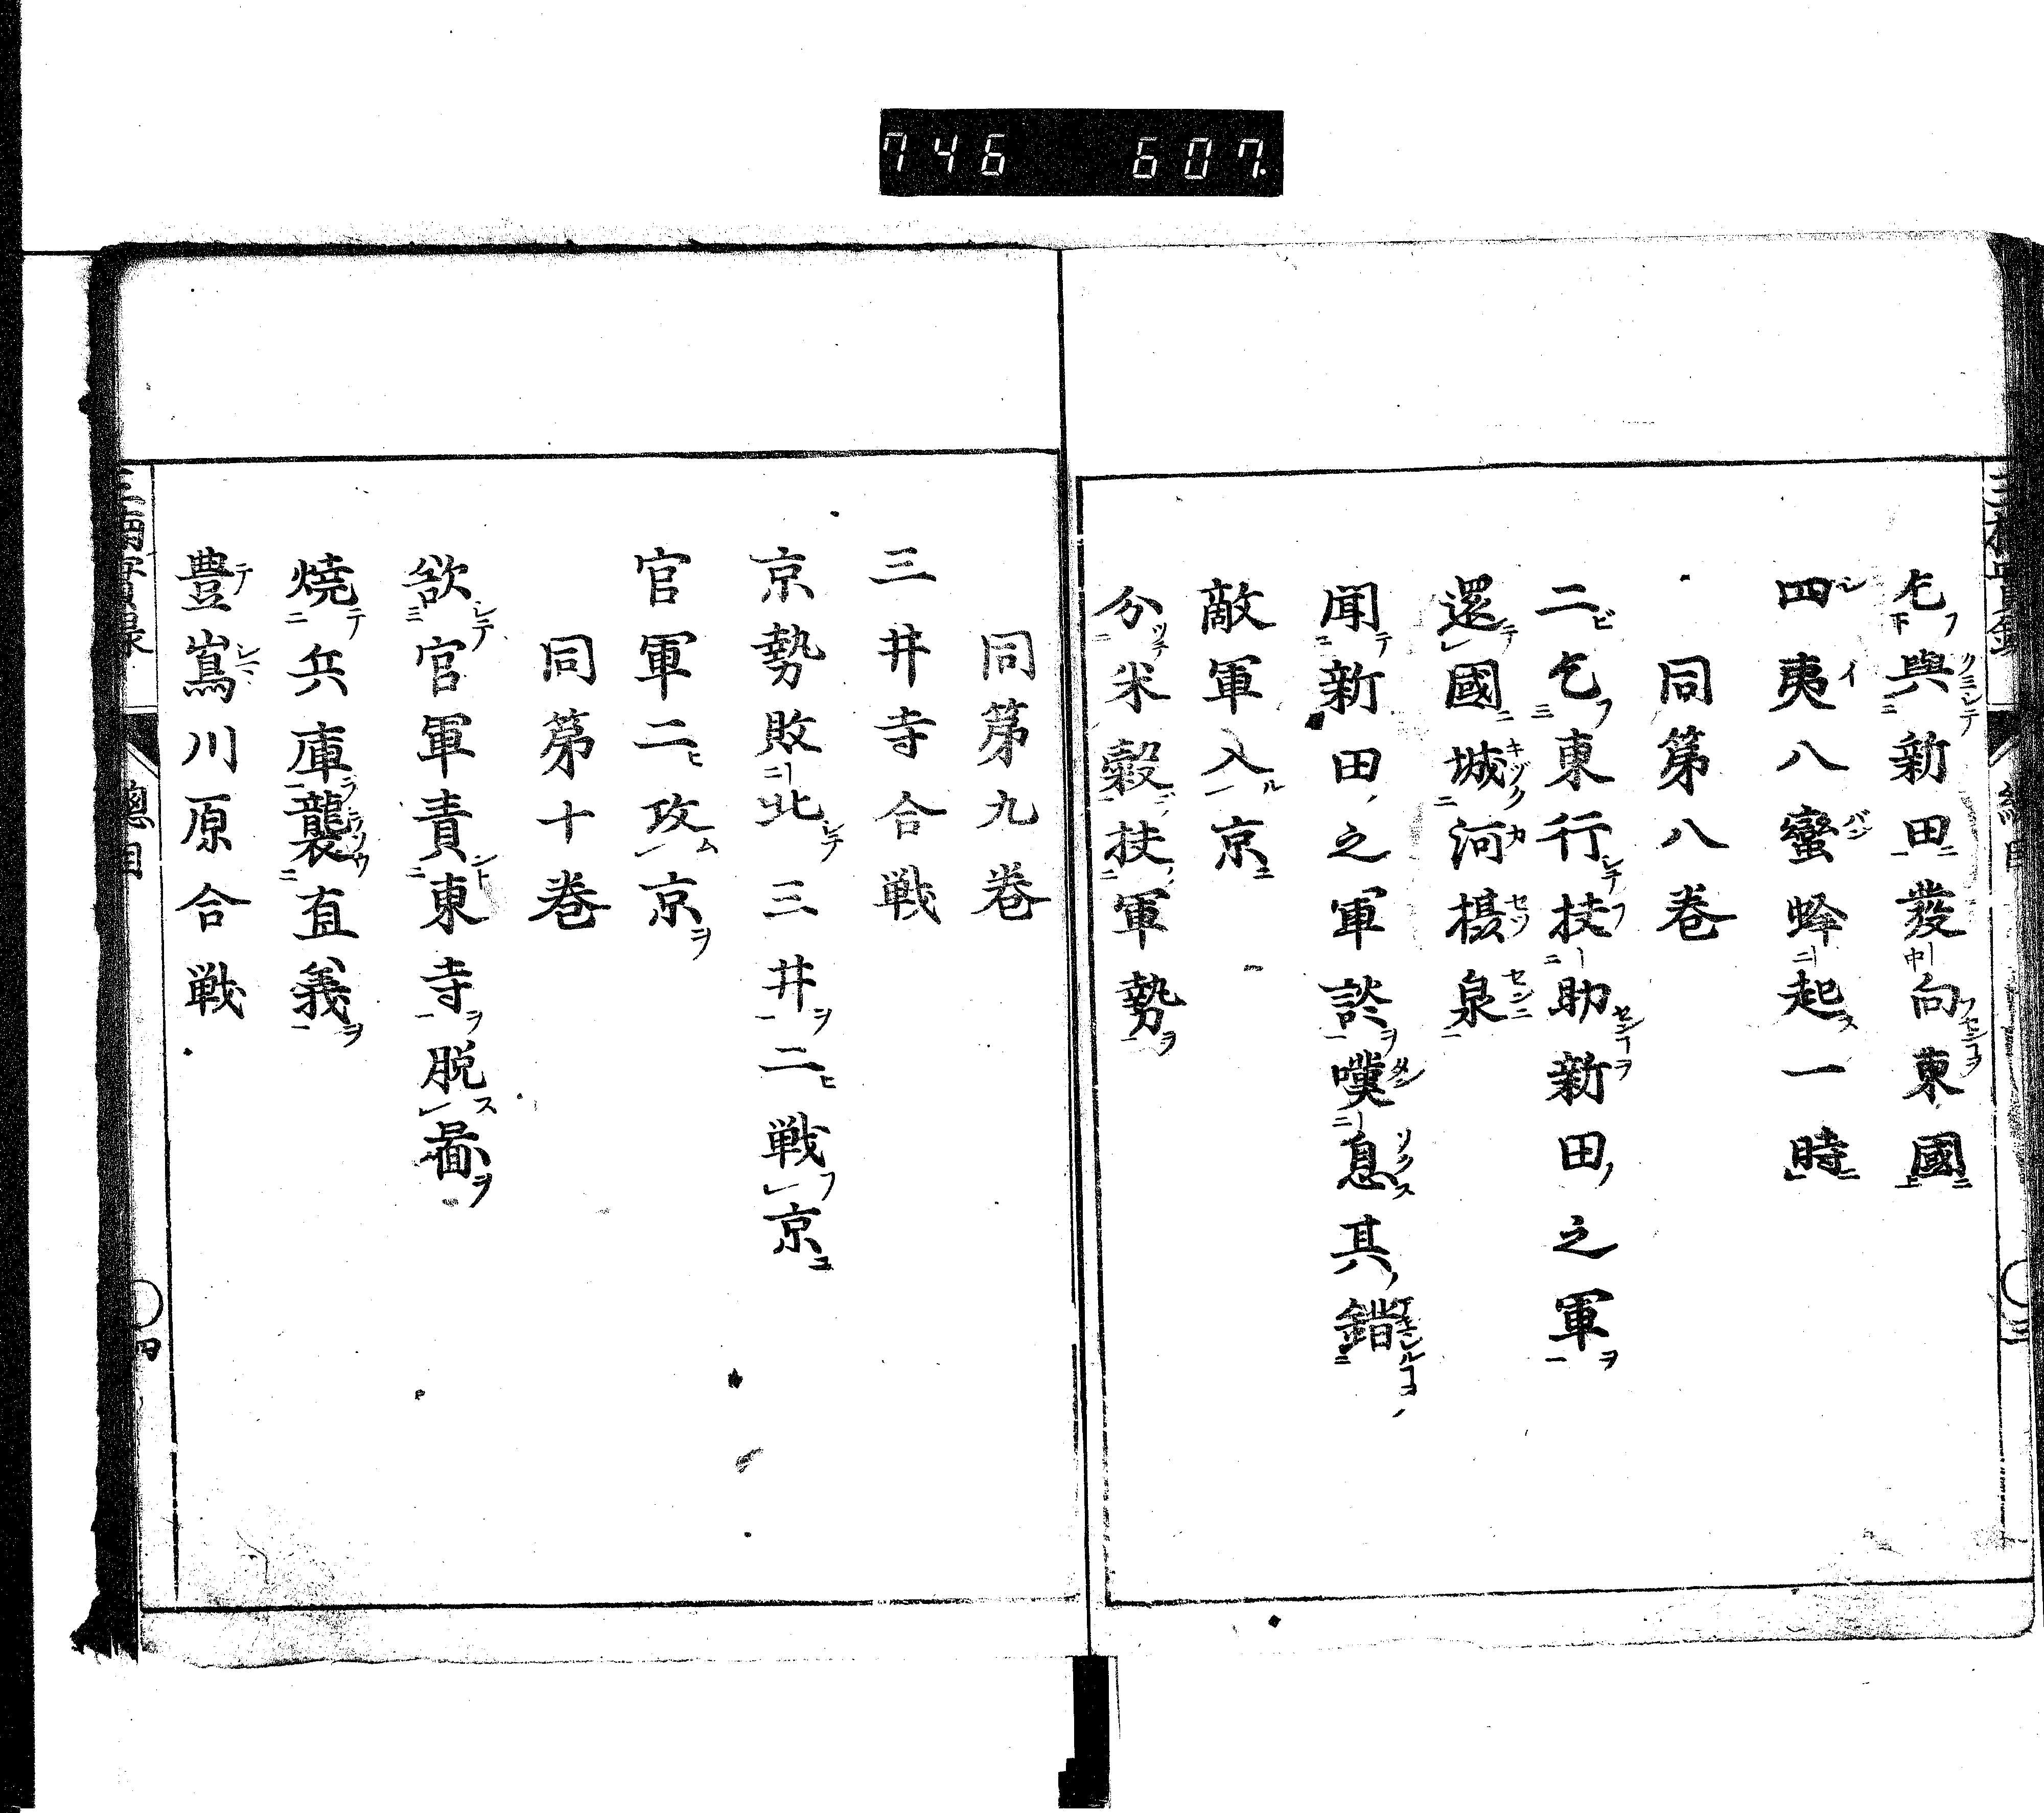 746 607.
乞與新田發向東國
四夷八蠻蜂起一時
同第八巻
二乞東行扶助新田之軍
還國城河摂泉
聞新田之軍談嘆息其錯
敵軍入京
分米穀扶軍勢
同第九巻
三井寺合戦
京勢敗北三井二戦京
官軍二攻京
同第十巻
欲官軍責東寺脱圖
燒兵庫襲直義
豊嶌川原合戦
總目
四